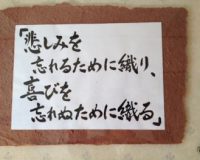 「悲しみを
忘れるために織り、
喜びを
忘れぬために織る」